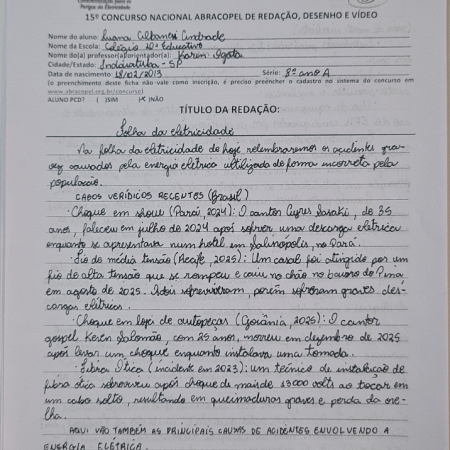 Perigos da Eletricidade
15º CONCURSO NACIONAL ABRACOPEL DE REDAÇÃO, DESENHO E VÍDEO
Nome do aluno: Luana Albanesi Andrade
Nome da Escola: Colégio Educativo
Nome do(a) professor(a)orientador(a): Karen Agota
Cidade/Estado: Indaiatuba - SP
Data de nascimento: 18/02/2013 Série: 8º ano A
(o preenchimento desta ficha não vale como inscrição, é preciso preencher o cadastro no sistema do concurso em
www.abracopel.org.br/concurso)
ALUNO PCD? ( )SIM (X)NÃO
TÍTULO DA REDAÇÃO:
Folha da eletricidade
Na folha da eletricidade de hoje relembraremos os acidentes gra-
ves causados pela energia elétrica utilizada de forma incorreta pela
população.
CASOS VERÍDICOS RECENTES (Brasil)
· Choque em show (Pará, 2024): O cantor Ayres Sasaki, de 35
anos, faleceu em julho de 2024 após sofrer uma descarga elétrica
enquanto se apresentava num hotel em Salinópolis, no Pará.
· Fio de média tensão (Recife, 2025): Um casal foi atingido por um
fio de alta tensão que se rompeu e caiu no chão no bairro do Pina
em agosto de 2025. Os dois sobreviveram, porém sofreram graves des-
cargas elétricas.
· Choque em loja de autopeças (Goiânia, 2025): O cantor
gospel Keven Salomão, com 25 anos, morreu em dezembro de 2025
após levar um choque enquanto instalava uma tomada.
· Fibra Ótica (incidente em 2023): um técnico de instalação de
fibra ótica sobreviveu após choque de mais de 13000 volts ao tocar em
um cabo solto, resultando em queimaduras graves e perda da ore-
lha.
AQUI VÃO TAMBÉM AS PRINCIPAIS CAUSAS DE ACIDENTES ENVOLVENDO A
ENERGIA ELÉTRICA.